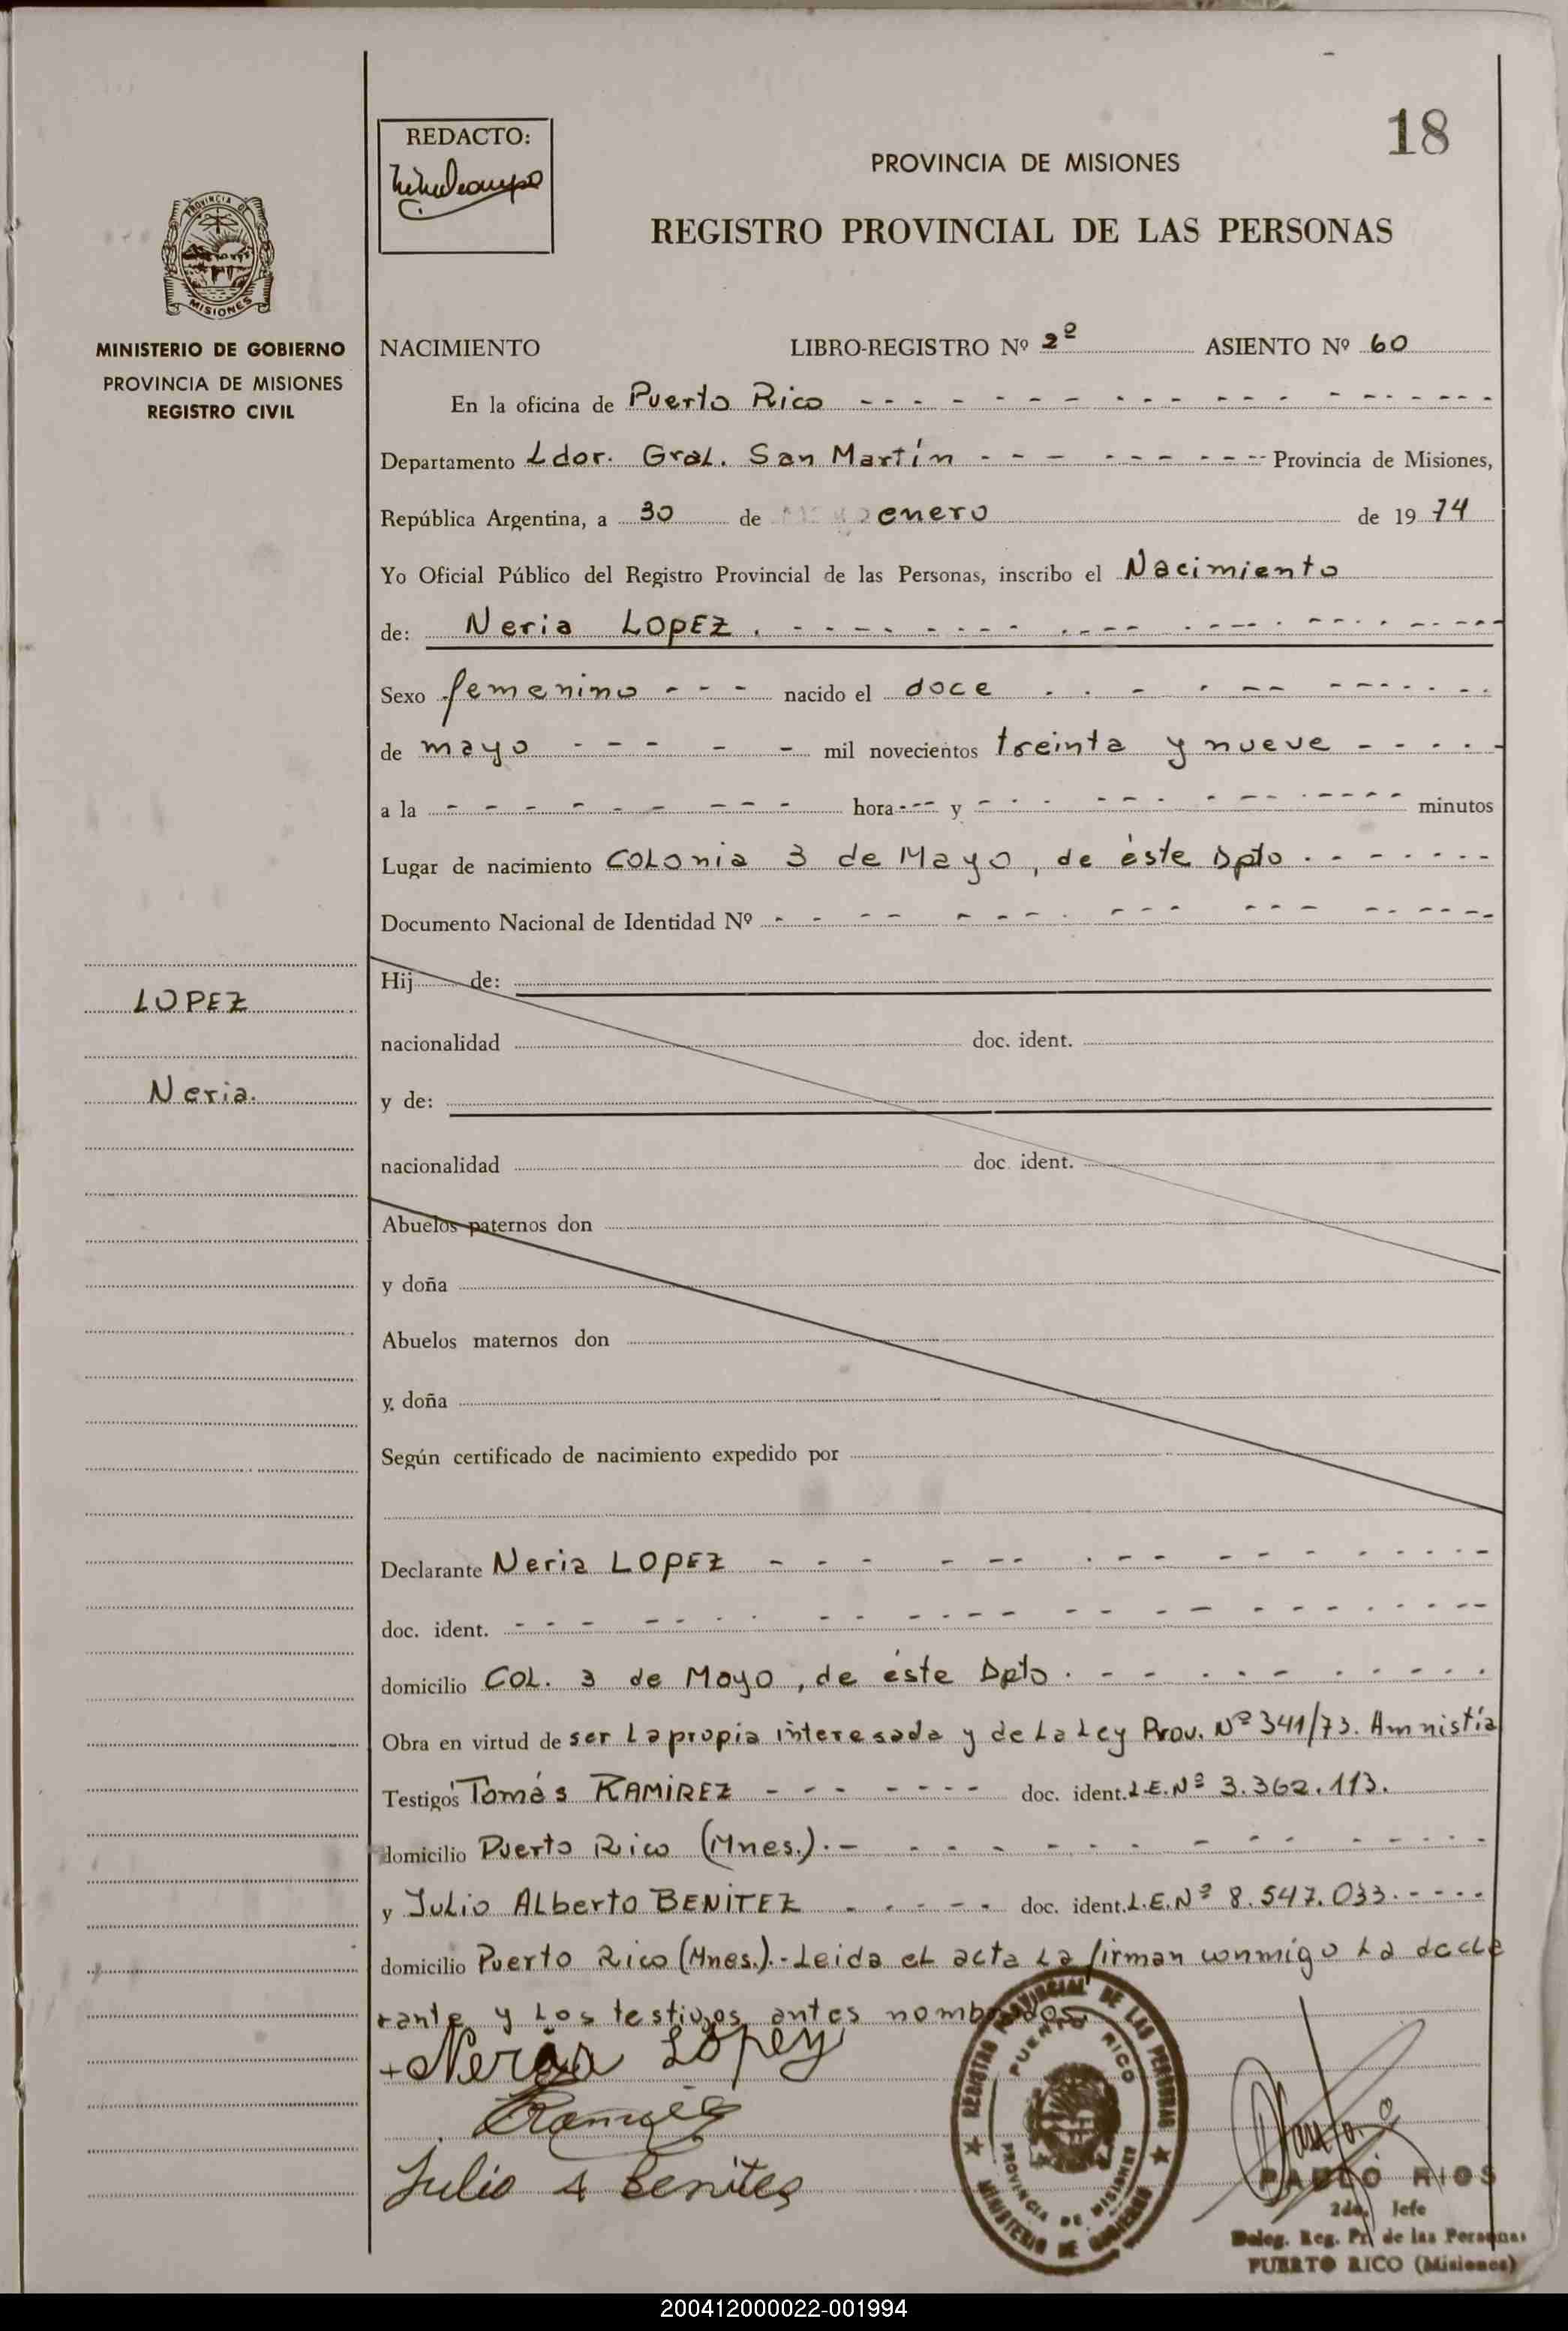 18
REDACTO:
PROVINCIA DE MISIONES
REGISTRO PROVINCIAL DE LAS PERSONAS
PROVINCIA DE
MISIONES
MINISTERIO DE GOBIERNO
PROVINCIA DE MISIONES
REGISTRO CIVIL
NACIMIENTO LIBRO-REGISTRO Nº 2º ASIENTO Nº 60
En la oficina de Puerto Rico
Departamento Ldor. Gral. San Martín Provincia de Misiones,
República Argentina, a 30 de enero de 19 74
Yo Oficial Público del Registro Provincial de las Personas, inscribo el Nacimiento
de: Neria LOPEZ.
Sexo femenino nacido el doce
de mayo mil novecientos treinta y nueve
a la hora y minutos
Lugar de nacimiento Colonia 3 de Mayo, de éste Dpto.
Documento Nacional de Identidad Nº
Hij de:
LOPEZ
nacionalidad doc. ident.
Neria.
y de:
nacionalidad doc. ident.
Abuelos paternos don
y doña
Abuelos maternos don
y doña
Según certificado de nacimiento expedido por
Declarante Neria LOPEZ
doc. ident.
domicilio Col. 3 de Mayo, de éste Dpto.
Obra en virtud de ser la propia interesada y de la Ley Prov. Nº 341/73. Amnistía
Testigos Tomás RAMIREZ doc. ident. L.E. Nº 3.362.113.
domicilio Puerto Rico (Mnes.).-
y Julio Alberto BENITEZ doc. ident. L.E. Nº 8.547.033.
domicilio Puerto Rico (Mnes.).- Leida el acta la firman conmigo la decla
rante y los testigos antes nombrados.
+Neria Lopez
Ramirez
Julio A Benites
REGISTRO PROVINCIAL DE LAS PERSONAS
PUERTO RICO
PROVINCIA DE MISIONES
MINISTERIO DE GOBIERNO
PABLO RIOS
2do. Jefe
Deleg. Reg. Pr. de las Personas
PUERTO RICO (Misiones)
200412000022-001994